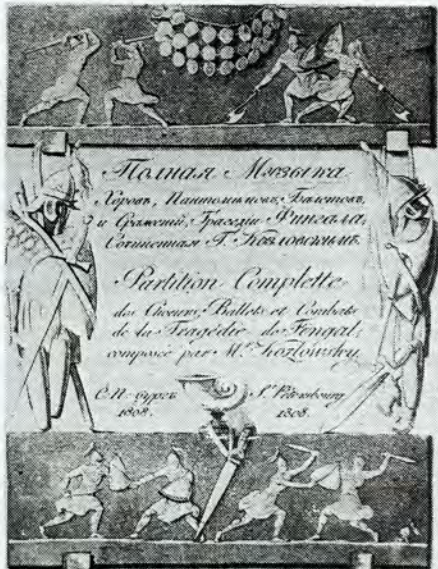 Полная Музыка
Хоровъ, Пантомимовъ, Балетовъ,
и Сражений, Трагедіи Фингала,
Сочиненная Г. Козловскимъ.
Partition Complette
des Choeurs, Ballets et Combats
de la Tragédie de Fengal,
composé par Mr. Kozlovsky,
С. П. бургъ St. Pétersbourg
1808. 1808.